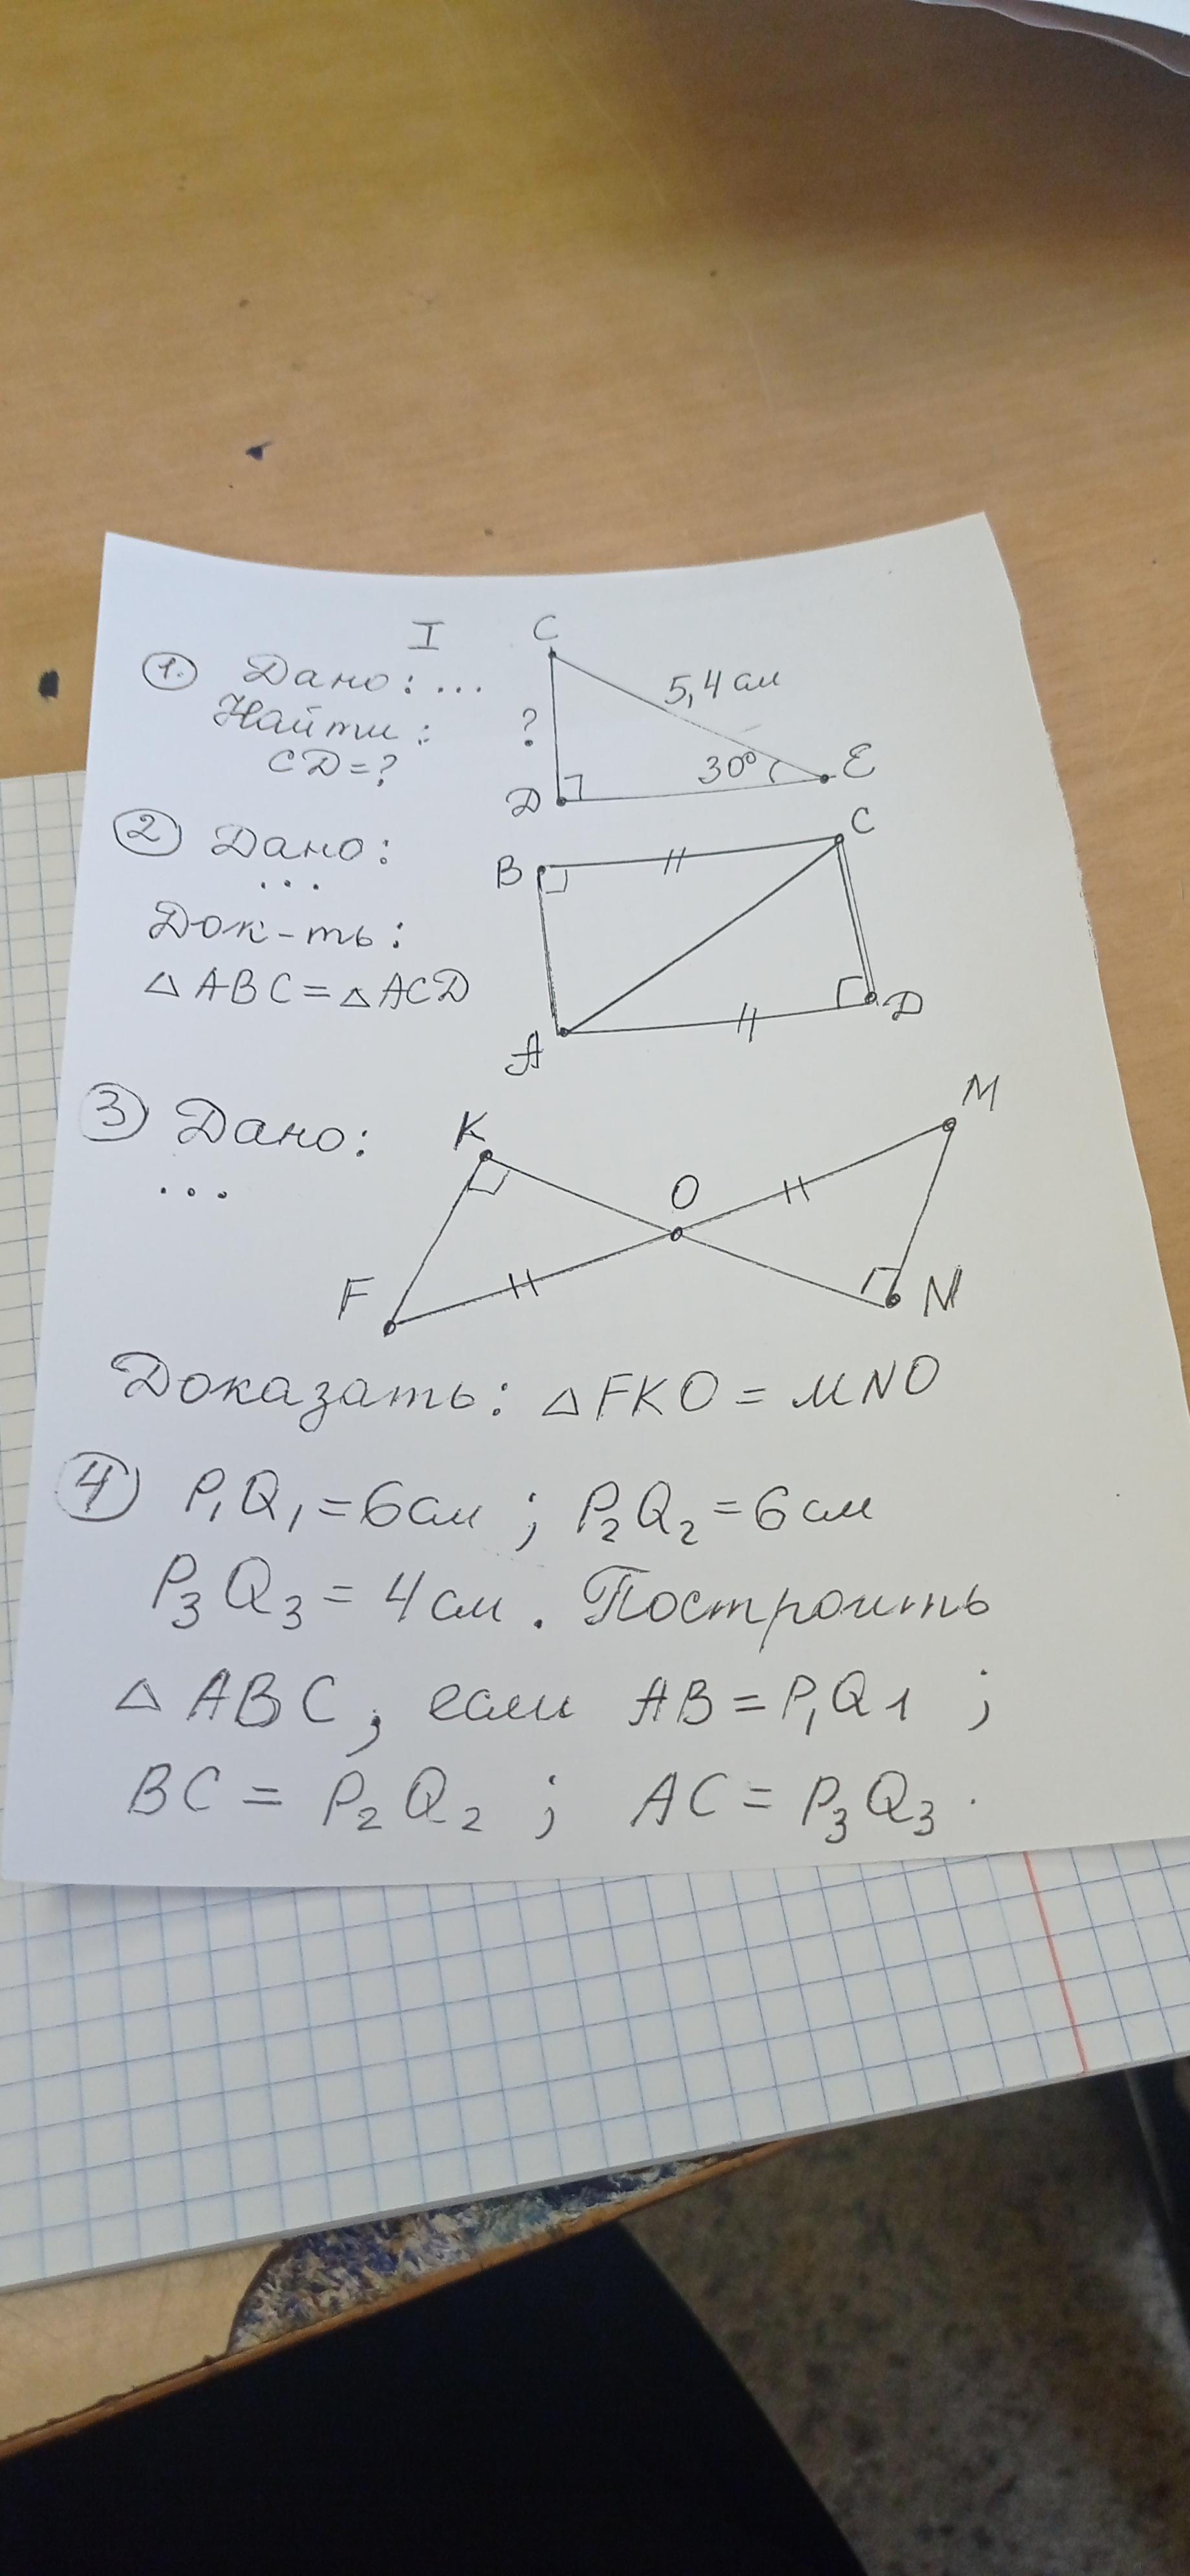 I
1. Дано: ...
Найти:
CD=?
C
5,4 см
?
30°
E
D
2 Дано:
...
Док-ть:
△ABC=△ACD
B
C
A
D
3 Дано:
...
K
M
O
F
N
Доказать: △FKO = MNO
4 P₁Q₁=6см ; P₂Q₂=6см
P₃Q₃=4см. Построить
△ABC, если AB=P₁Q1 ;
BC = P₂Q₂ ; AC=P₃Q₃.